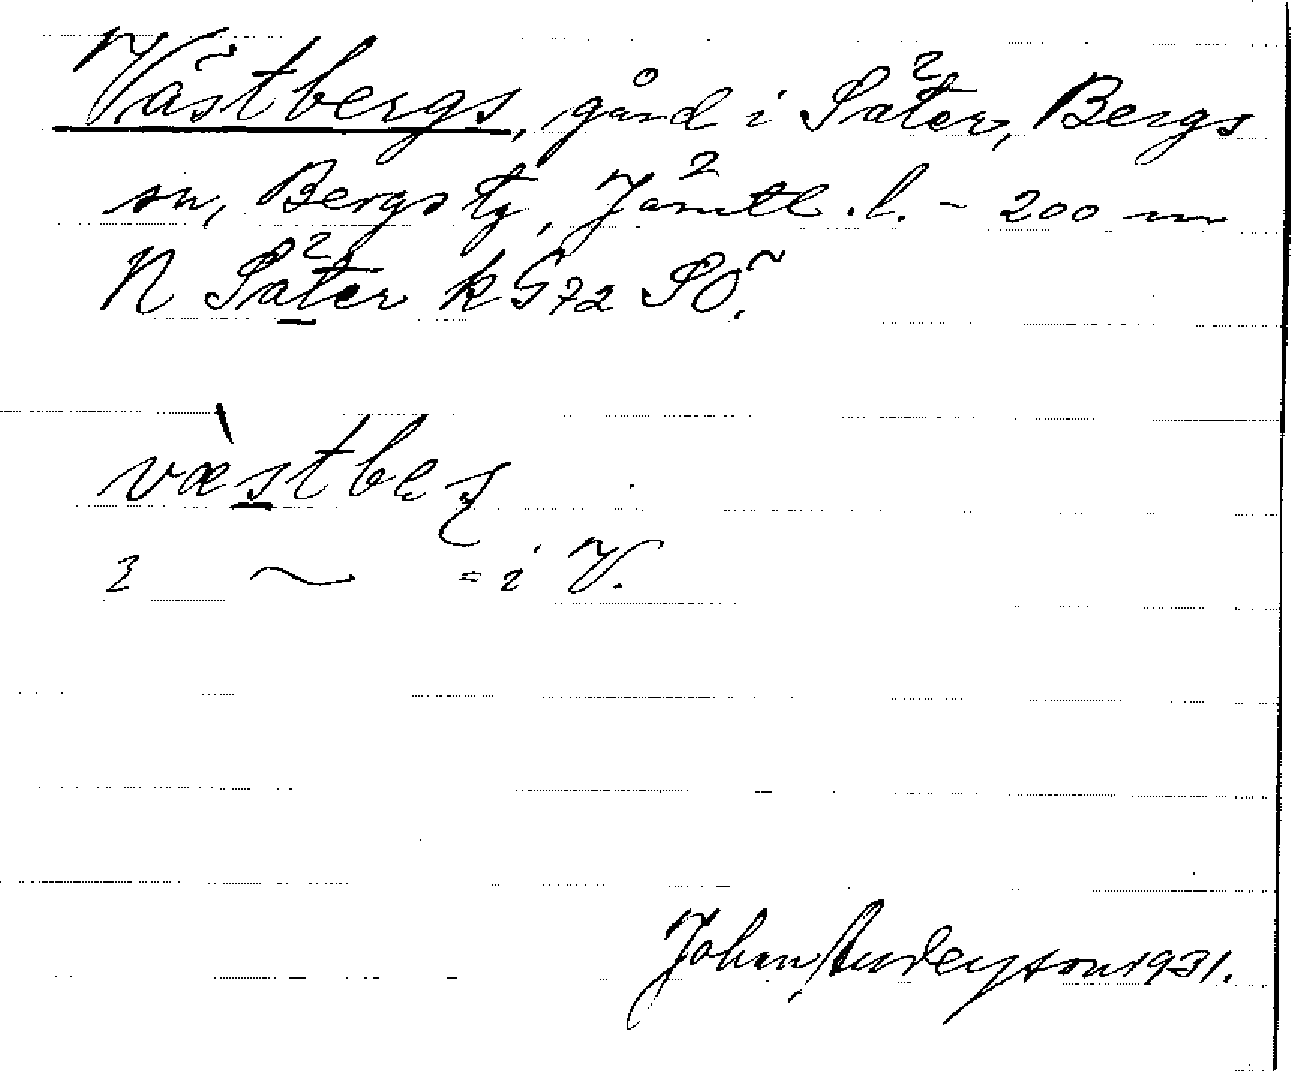 Västbergs, gård i Säter, Bergs
sn, Bergs tg, Jämtl. l. - 200 m
N Säter k G72 SÖ.
væ̀stbeʂ
i ~ = i V.
Johan Andersson 1931.